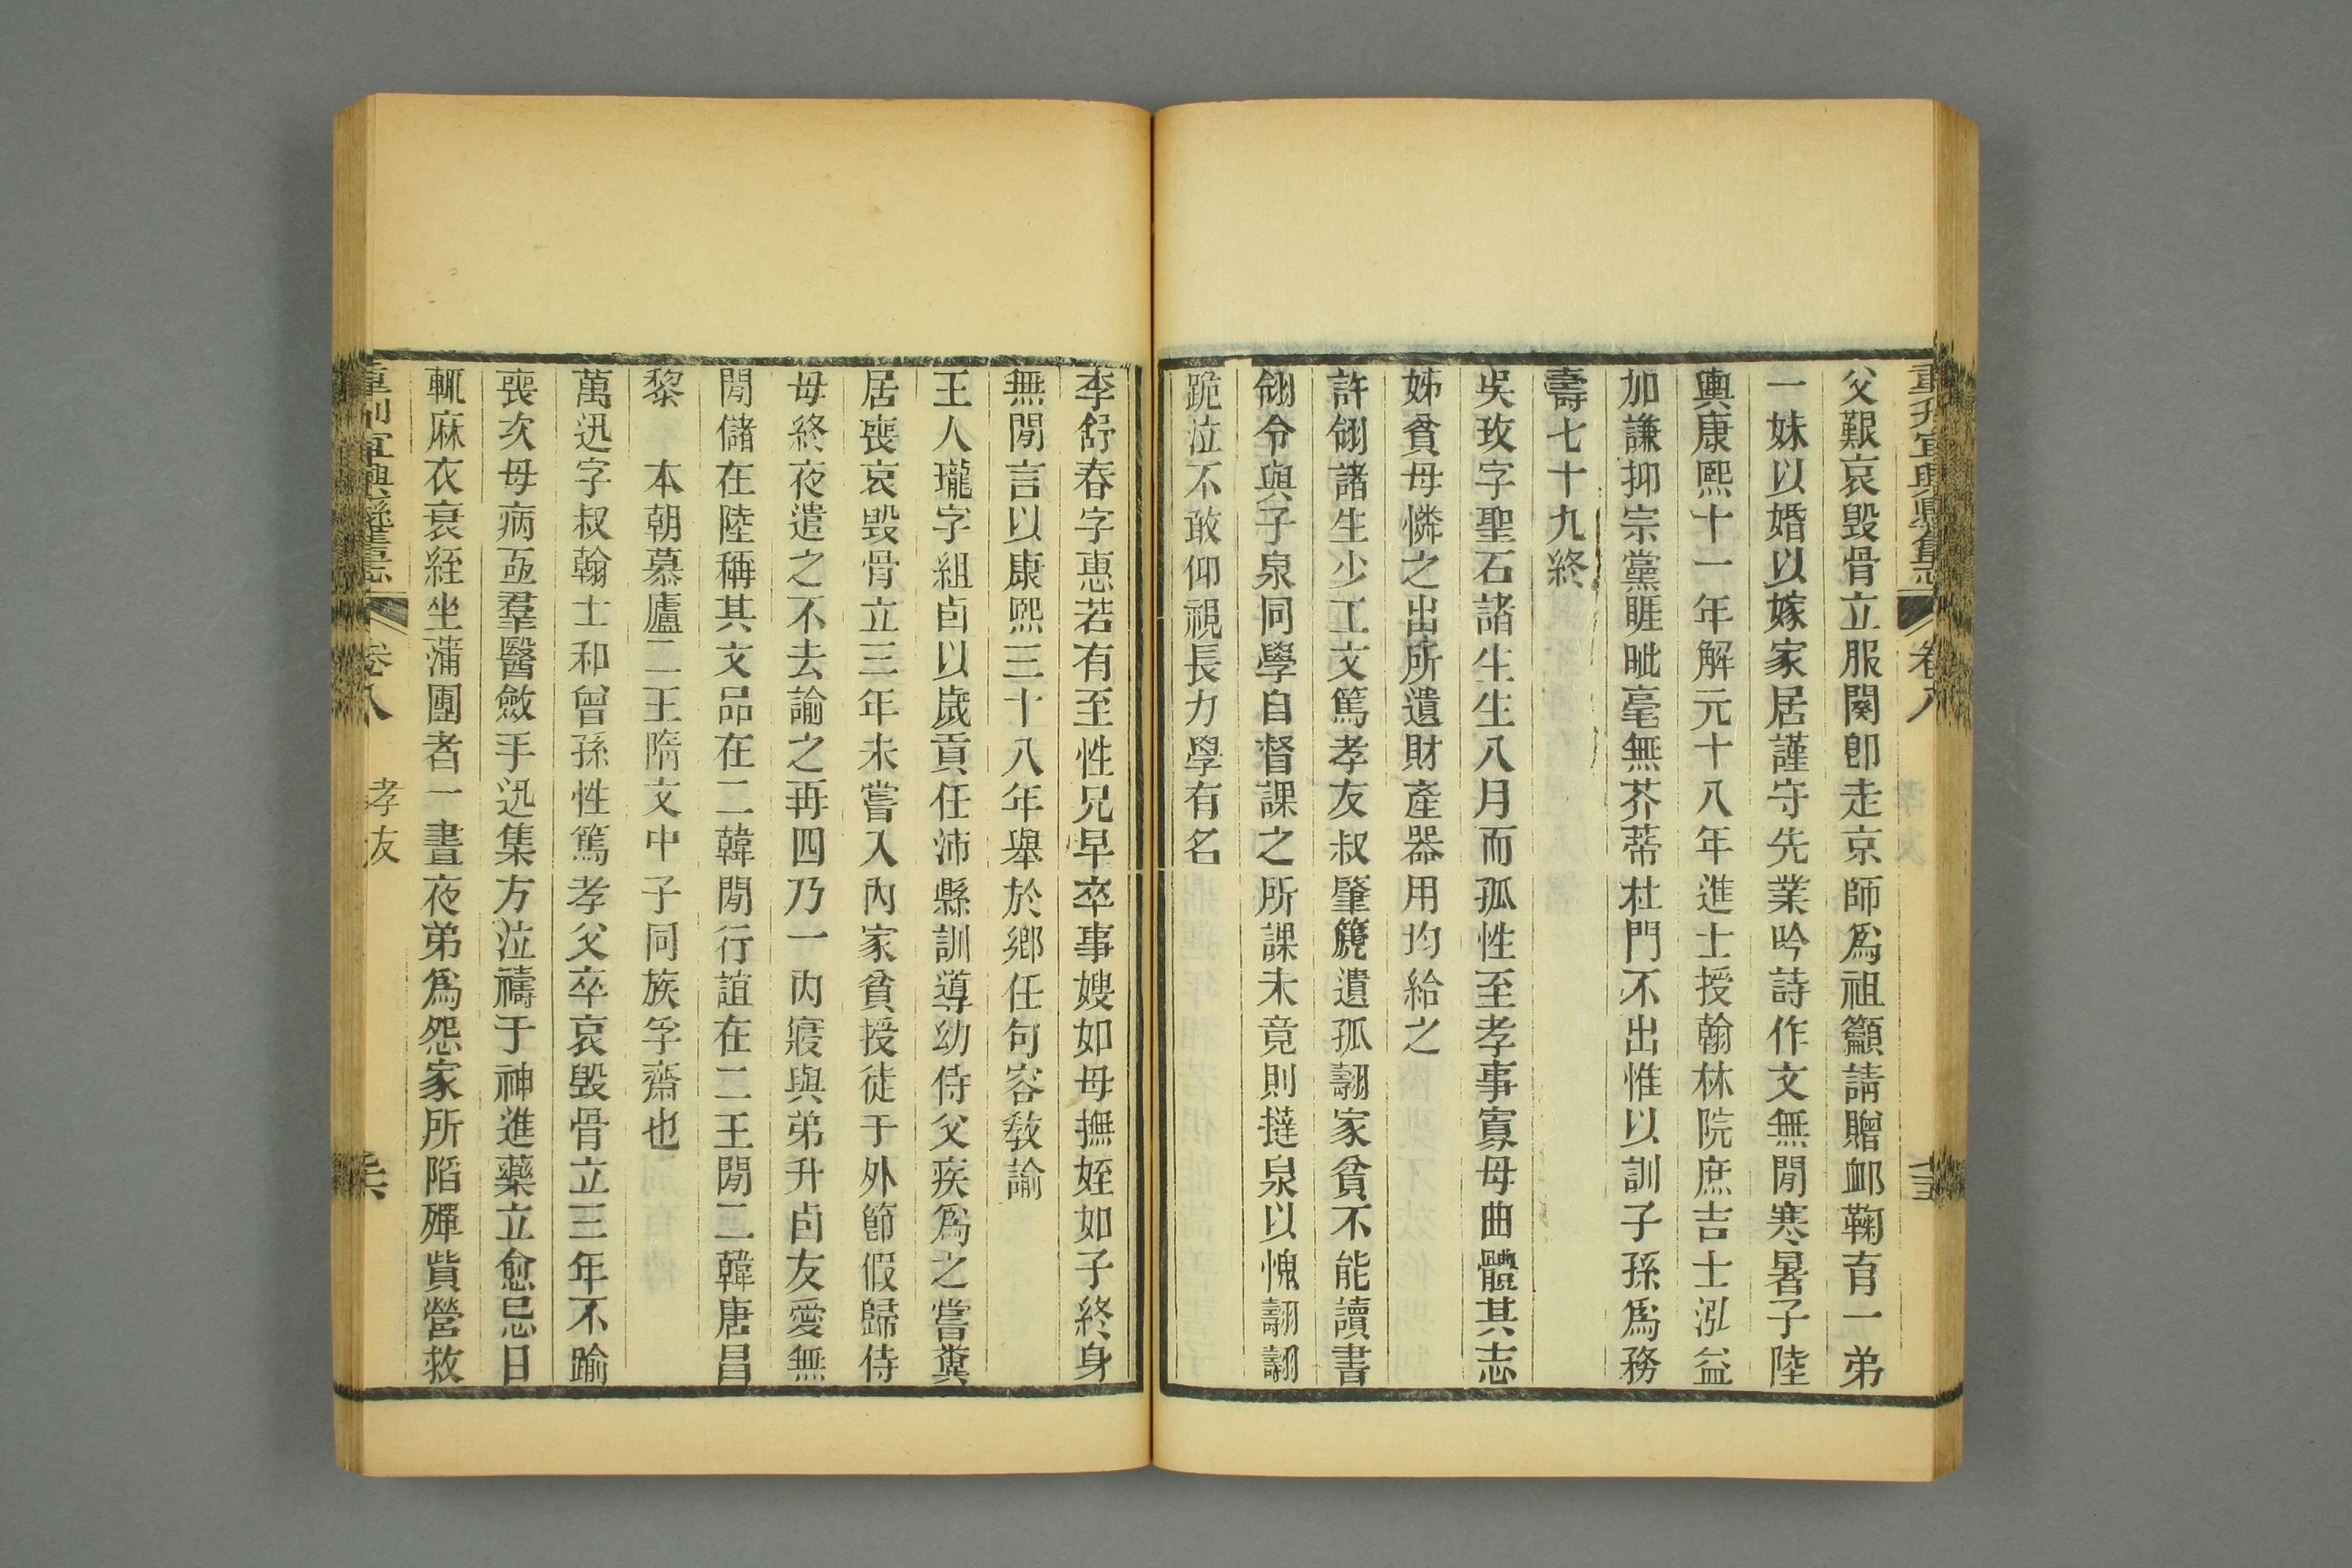 父艱哀毀骨立服闋卽走京師爲祖籲請贈卹鞠育一弟
一妹以婚以嫁家居謹守先業吟詩作文無閒寒暑子陸
輿康熙十一年解元十八年進士授翰林院庶吉士泓益
加謙抑宗黨睚眦毫無芥蒂杜門不出惟以訓子孫爲務
壽七十九終
吳玫字聖石諸生生八月而孤性至孝事寡母曲體其志
姊貧母憐之出所遺財產器用均給之
許翎諸生少工文篤孝友叔肇篪遺孤翮家貧不能讀書
翎令與子泉同學自督課之所課未竟則撻泉以愧翮翮
跪泣不敢仰視長力學有名
李舒春字惠若有至性兄早卒事嫂如母撫姪如子終身
無閒言以康熙三十八年舉於鄉任句容敎諭
王人瓏字組卣以歲貢任沛縣訓導幼侍父疾爲之嘗糞
居喪哀毀骨立三年未嘗入內家貧授徒于外節假歸侍
母終夜遣之不去諭之再四乃一內寢與弟升卣友愛無
閒儲在陸稱其文品在二韓閒行誼在二王閒二韓唐昌
黎　本朝慕廬二王隋文中子同族孚齋也
萬迅字叔翰士和曾孫性篤孝父卒哀毀骨立三年不踰
喪次母病亟羣醫斂手迅集方泣禱于神進藥立愈忌日
輒麻衣衰絰坐蒲團者一晝夜弟爲怨家所陷殫貲營救
重刊宜興縣舊志
卷八
孝友